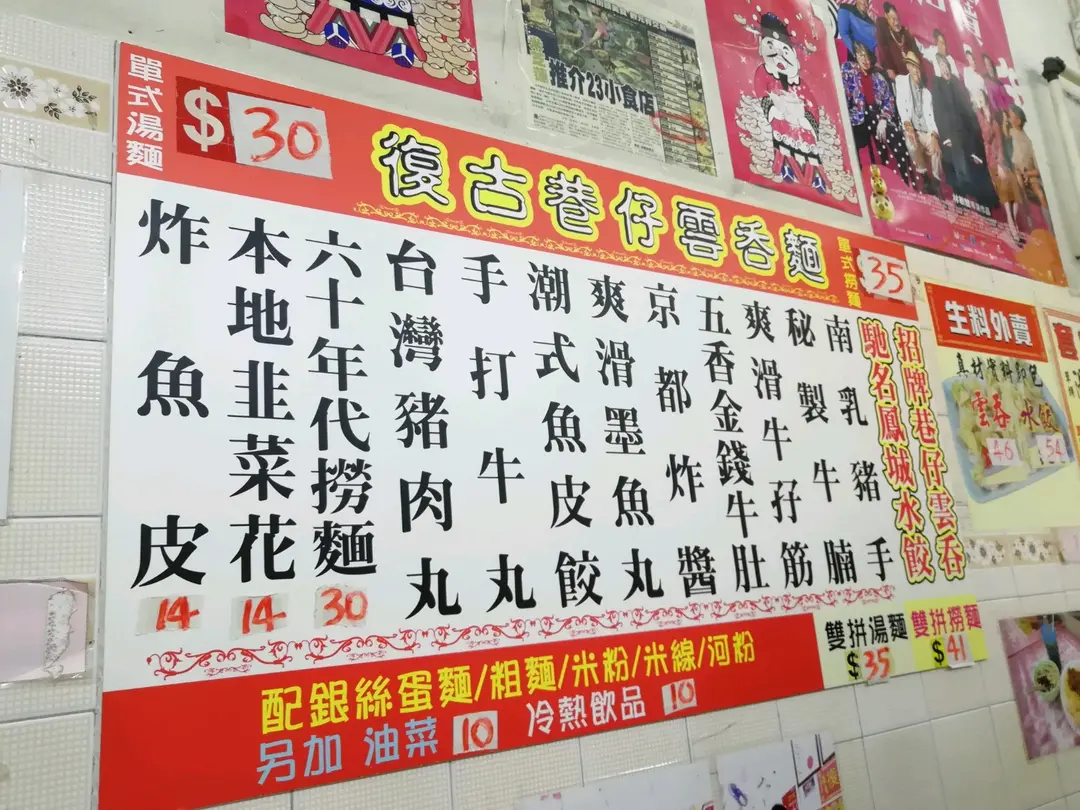 推介23小食店
單式湯麵
$30
復古巷仔雲吞麵
單式撈麵
35
招牌巷仔雲吞
馳名鳳城水餃
南乳豬手
秘製牛腩
爽滑牛孖筋
五香金錢牛肚
京都炸醬
爽滑墨魚丸
潮式魚皮餃
手打牛丸
台灣豬肉丸
六十年代撈麵
30
本地韭菜花
14
炸魚皮
14
雙拼湯麵
$35
雙拼撈麵
$41
配銀絲蛋麵/粗麵/米粉/米線/河粉
另加 油菜 10 冷熱飲品 10
生料外賣
真材實料即包
雲吞 水餃
46 54